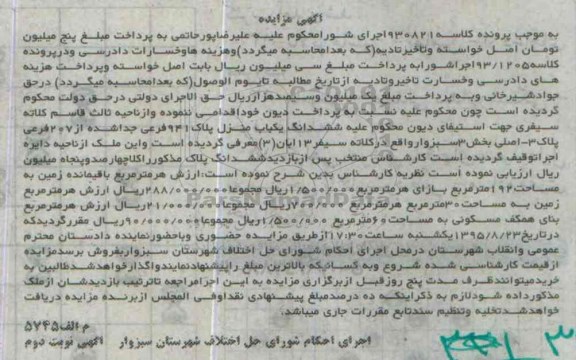 آگهی مزایده
به موجب پرونده کلاسه ۹۳۰۸۲۱اجرای شورامحکوم علیه علیرضاپورحاتمی به پرداخت مبلغ پنج میلیون
تومان اصل خواسته وتاخیرتادیه(که بعدامحاسبه میگردد)وهزینه هاوخسارات دادرسی ودرپرونده
کلاسه۹۳/۱۲۰۵اجراشورابه پرداخت مبلغ سی میلیون ریال بابت اصل خواسته وپرداخت هزینه
های دادرسی وخسارت تاخیروتادیه ازتاریخ مطالبه تایوم الوصول(که بعدامحاسبه میگردد) درحق
جوادشیرخانی وبه پرداخت مبلغ یک میلیون وسیصدهزارریال حق الاجرای دولتی درحق دولت محکوم
گردیده است چون محکوم علیه نسبت به پرداخت دیون خوداقدامی ننموده وازناحیه ثالث قاسم کلاته
سیفری جهت استیفای دیون محکوم علیه ششدانگ یکباب منزل پلاک۹۴۱فرعی جداشده از۲۰۷فرعی
پلاک۳-اصلی بخش۳سبزوارواقع درکلاته سیفر۱۳آبان(۳)معرفی گردیده است واین ملک ازناحیه دایره
اجراتوقیف گردیده است کارشناس منتخب پس ازبازدیدششدانگ پلاک مذکورراکلاچهارصدوپنجاه میلیون
ریال ارزیابی نموده است نظریه کارشناس بدین شرح نموده است:ارزش هرمترمربع باقیمانده زمین به
مساحت۱۹۲مترمربع بازای هرمترمربع۱/۵۰۰/۰۰۰ریال مجموعا۲۸۸/۰۰۰/۰۰۰ریال ارزش هرمترمربع
زمین به مساحت۳۰مترمربع هرمترمربع ۷۰۰/۰۰۰ریال مجموعا۲۱/۰۰۰/۰۰۰ریال ارزش هرمترمربع
بنای همکف مسکونی به مساحت۶۰مترمربع ۱/۵۰۰/۰۰۰ ریال مجموعا۹۰/۰۰۰/۰۰۰ریال مقررگردیدکه
درتاریخ۱۳۹۵/۸/۲۳یکشنبه ساعت۱۷:۳۰ازطریق مزایده حضوری وباحضورنماینده دادستان محترم
عمومی وانقلاب شهرستان درمحل اجرای احکام شورای حل اختلاف شهرستان سبزواربفروش برسدمزایده
ازقیمت کارشناسی شده شروع وبه کسانیکه بالاترین مبلغ راپیشنهادنمایندواگذارخواهدشدطالبین به
خریدمیتوانندظرف مدت پنج روزقبل ازبرگزاری مزایده به این اجرامراجعه تاترتیب بازدیدشان ازملک
مذکورداده شودلازم به ذکراینکه ده درصدمبلغ پیشنهادی نقداوفی المجلس ازبرنده مزایده دریافت
خواهدشدتخلیه وتنظیم سندتابع مقررات جاری میباشد.
م الف۵۷۴۵
اجرای احکام شورای حل اختلاف شهرستان سبزوار آگهی نوبت دوم